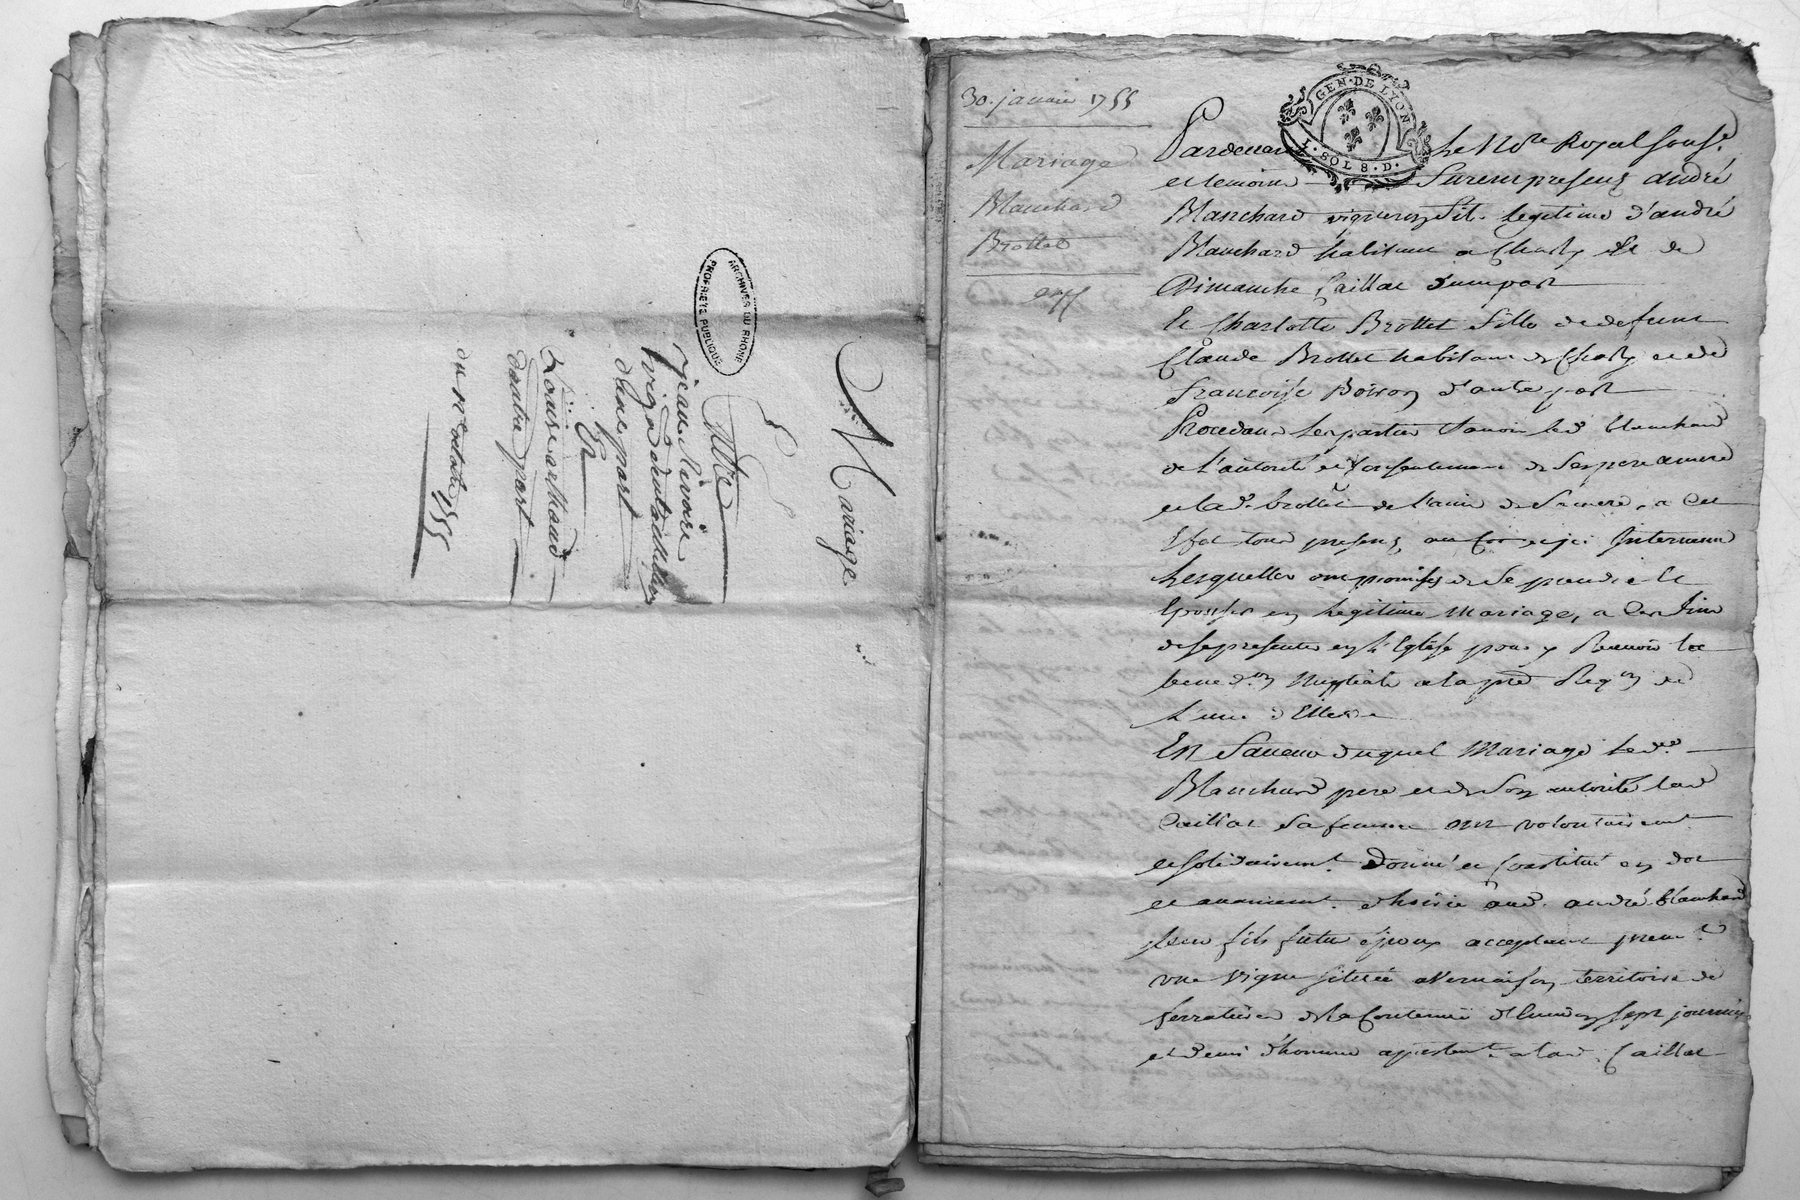 Mariage
Entre
jean Rivoire
d'une part
Et
Louise
d'autre part
du 1755
ARCHIVES DU RHONE
PROPRIETE PUBLIQUE
30. janvier 1755
Mariage
Blanchard
Brottet
GEN. DE LYON
1. SOL 8. D.
Pardevant Le No.re Royal sous.é
et temoins furent presens andré
Blanchard vigneron fils legitime d'andré
Blanchard habitant a Charly et de
Dimanche Caillat d'une part
Et Charlotte Brottet fille de defunt
Claude Brottet habitant de Charly et de
francoise Boiron d'autre part
Procedant les parties savoir led. blanchard
de l'autorité et Consentement de ses pere et mere
et lad. brottet de l'avis de sa mere, a Cet
Effet tous presens, intervenant
Lesquelles ont promises de Se prendre et
Epouser en Legitime Mariage, a Ces fins
de se presenter en L'Eglise pour y Recevoir la
bened.on Nuptiale a la pre. Req.on de
L'une d'Elles
En faveur duquel Mariage Led.
Blanchard pere et de Son autorité lad.
Caillat Sa femme ont volontairem.t
et solidairem.t Donné et Constitué en dot
et avancem.t d'hoirie aud. andré blanchard
Leur fils futur epoux acceptant
une vigne située a Vernaison territoire de
de la Contenue d'Environ sept journées
et demi d'homme appartent. a lad. Caillat